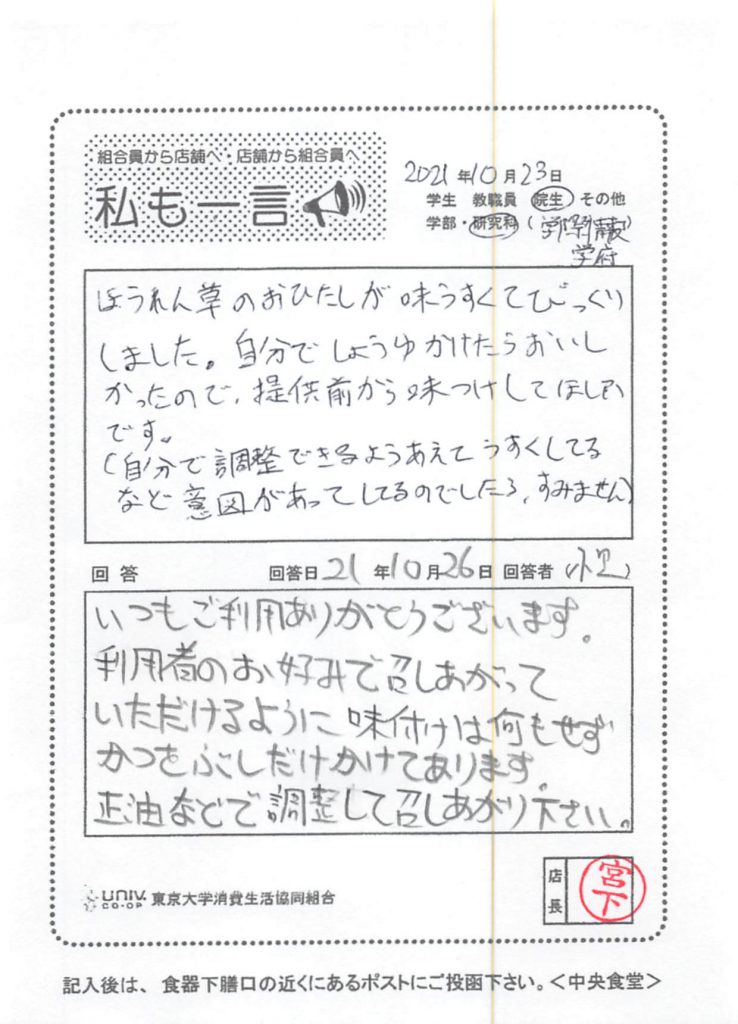 組合員から店舗へ・店舗から組合員へ
私も一言
2021年10月23日
学生 教職員 院生 その他
学部・研究科(学際情報)
学府
ほうれん草のおひたしが味うすくてびっくり
しました。自分でしょうゆかけたらおいし
かったので、提供前から味つけしてほしい
です。
(自分で調整できるようあえてうすくしてる
など意図があってしてるのでしたら、すみません)
回答 回答日 21年10月26日 回答者
いつもご利用ありがとうございます。
利用者のお好みで召しあがって
いただけるように味付けは何もせず
かつをぶしだけかけてあります。
正油などで調整して召しあがり下さい。
UNIV. CO-OP 東京大学消費生活協同組合
店長 宮下
記入後は、食器下膳口の近くにあるポストにご投函下さい。<中央食堂>